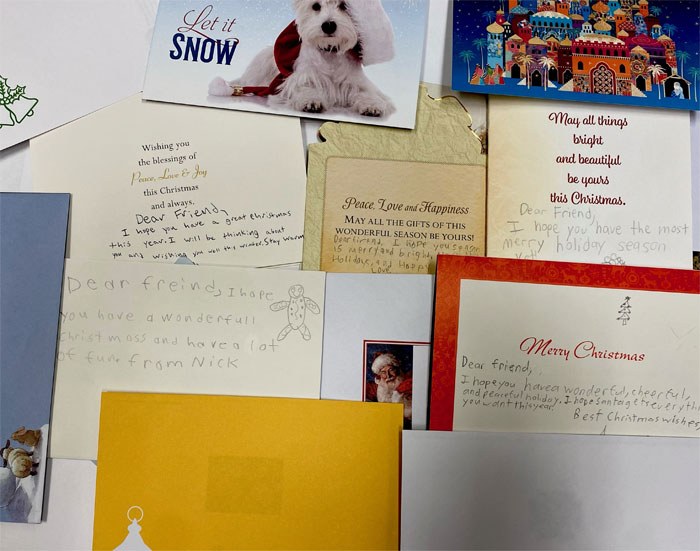 Let it
SNOW
Wishing you
the blessings of
Peace, Love & Joy
this Christmas
and always,
Dear Friend,
I hope you have a great christmas
this year. I will be thinking about
you and wishing you well this winter. Stay warm
Peace, Love and Happiness
MAY ALL THE GIFTS OF THIS
WONDERFUL SEASON BE YOURS!
Dear friend, I hope your season
is merry and bright,
Holidays, and Happy
Love
May all things
bright
and beautiful
be yours
this Christmas.
Dear Friend,
I hope you have the most
merry holiday season
yet!
Dear freind, I hope
you have a wonderfull
christmass and have a lot
of fun. from Nick
Merry Christmas
Dear friend,
I hope you have a wonderful, cheerful,
and peaceful holiday. I hope santa gets everyth
you want this year.
Best Christmas wishes,